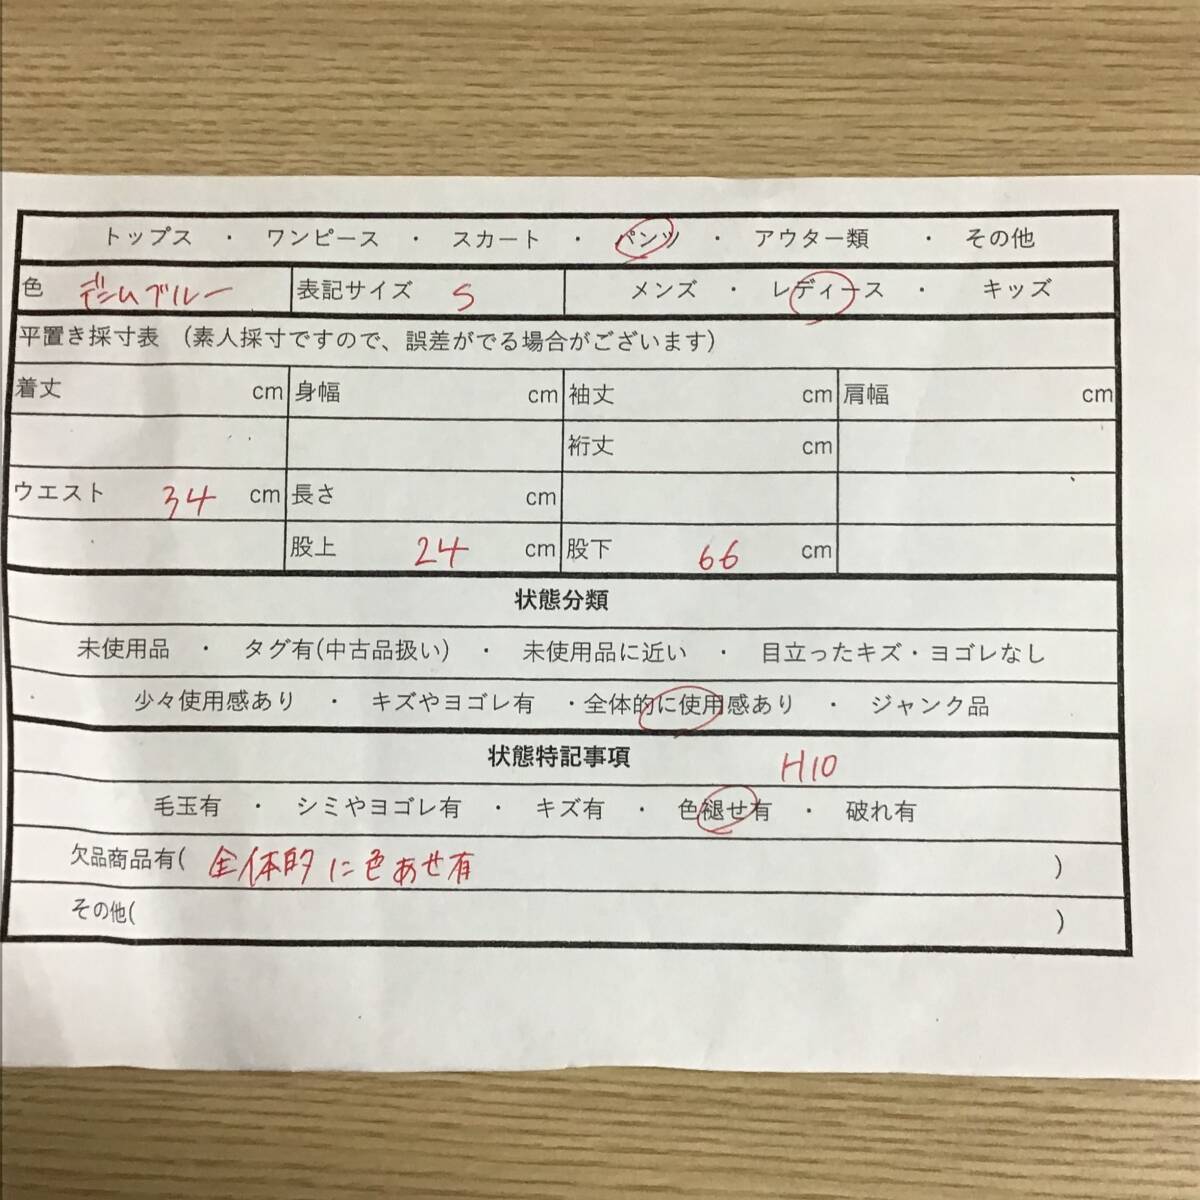 トップス ・ ワンピース ・ スカート ・ パンツ ・ アウター類 ・ その他
色 デニムブルー 表記サイズ S メンズ ・ レディース ・ キッズ
平置き採寸表 (素人採寸ですので、誤差がでる場合がございます)
着丈 cm 身幅 cm 袖丈 cm 肩幅 cm
裄丈 cm
ウエスト 34 cm 長さ cm
股上 24 cm 股下 66 cm
状態分類
未使用品 ・ タグ有(中古品扱い) ・ 未使用品に近い ・ 目立ったキズ・ヨゴレなし
少々使用感あり ・ キズやヨゴレ有 ・全体的に使用感あり ・ ジャンク品
状態特記事項 H10
毛玉有 ・ シミやヨゴレ有 ・ キズ有 ・ 色褪せ有 ・ 破れ有
欠品商品有( 全体的に色あせ有 )
その他( )